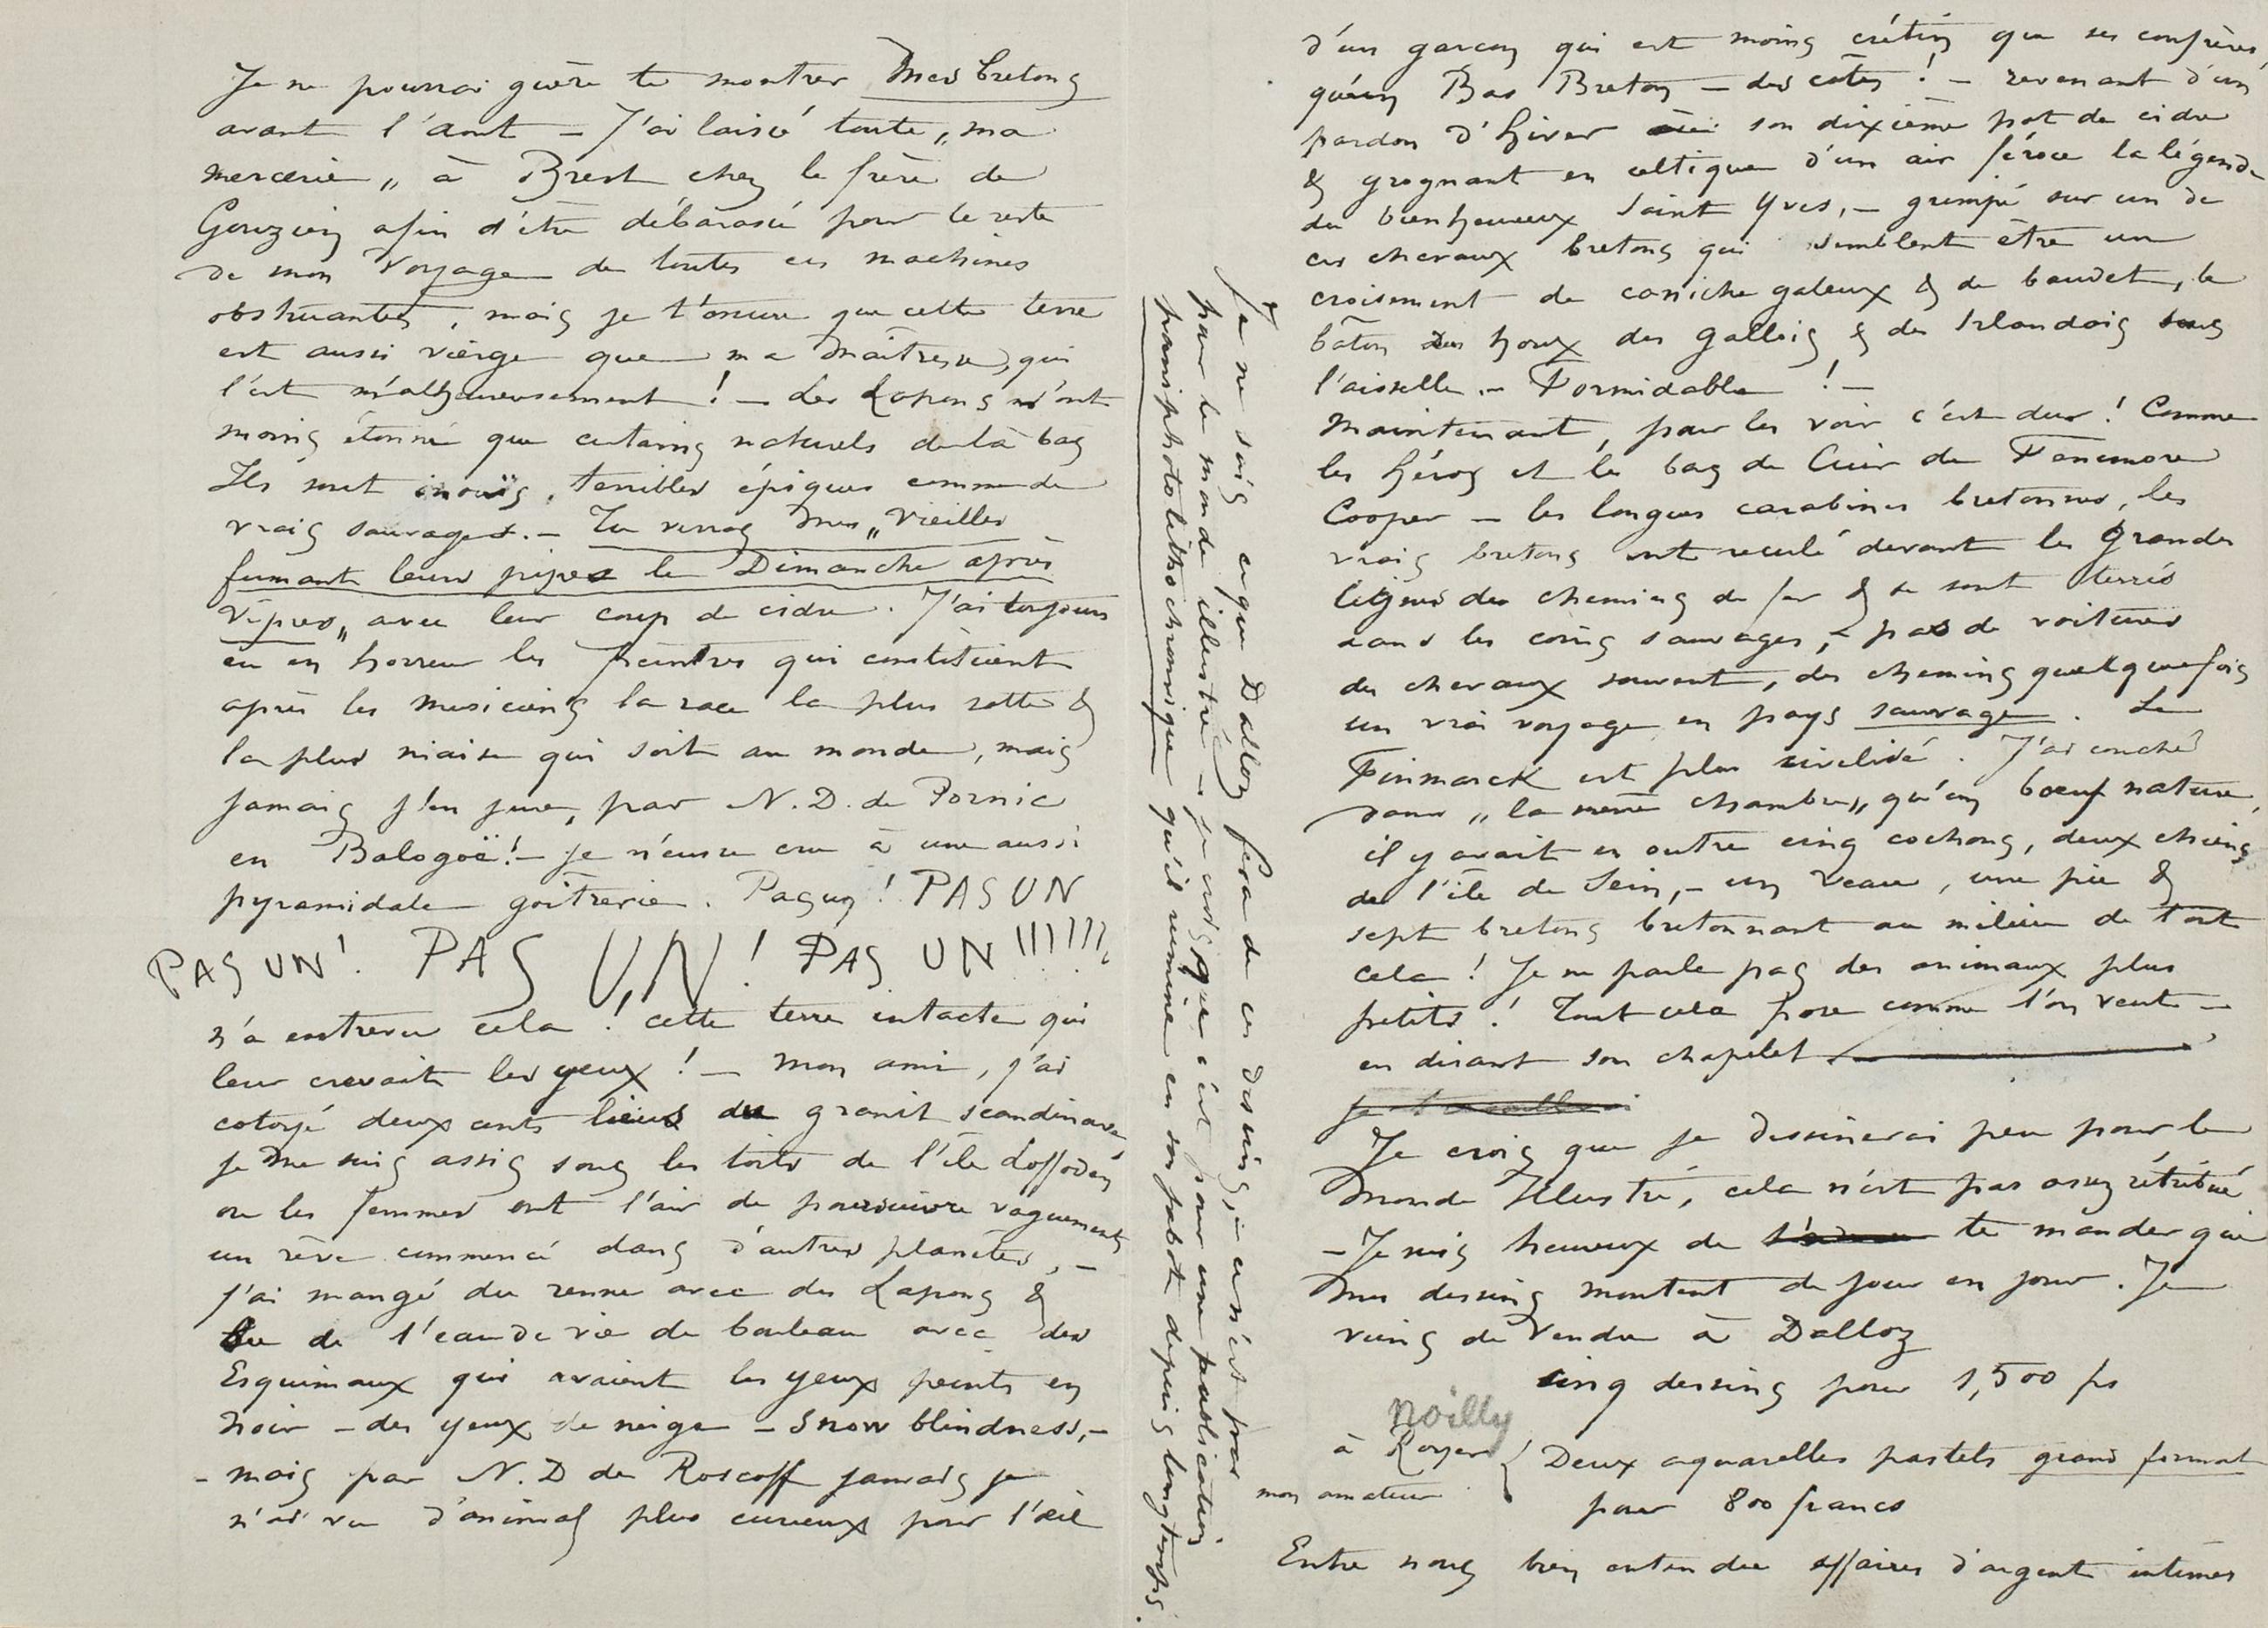 Je ne pourrai guère te montrer mes bretons
avant l'aout — J'ai laissé toute „ma
mercerie„ à Brest chez le frère de
Gouzien afin d'être débarassé pour le reste
de mon voyage de toutes ces machines
obstruantes, mais je t'assure que cette terre
est aussi vierge que ma maîtresse, qui
l'est malheureusement ! — Les Lapons m'ont
moins étonné que certains naturels de là bas
Ils sont inouïs, terribles épiques comme de
vrais sauvages. — Tu verras mes „Vieilles
fumant leurs pipes le Dimanche après
Vêpres„ avec leur coup de cidre. J'ai toujours
eu en horreur les peintres qui constituent
après les musiciens la race la plus sotte &
la plus niaise qui soit au monde, mais
jamais j'en jure, par N. D. de Pornic
en Balogoë ! — je n'eusse cru à une aussi
pyramidale goîtrerie. Pas un ! PAS UN
PAS UN ! PAS UN ! PAS UN !!!!!!!
n'a entrevu cela ! cette terre intacte qui
leur crevait les yeux ! — Mon ami, j'ai
cotoyé deux cents lieues de granit scandinave
je me suis assis sous les toits de l'île Loffoden
ou les femmes ont l'air de poursuivre vaguement
un rêve commencé dans d'autres planètes, —
j'ai mangé du renne avec des Lapons &
bu de l'eau de vie de bouleau avec des
Esquimaux qui avaient les yeux peints en
noir — des yeux de neige — Snow blindness, —
— mais par N. D de Roscoff jamais je
n'ai vu d'animal plus curieux pour l'œil
Je ne sais ce que Dalloz fera de ces dessins, — ce n'est pas
pour le monde illustré — je crois que c'est pour une publication
parmi photolithochromique qu'il rumine en son jabot depuis longtemps.
d'un garcon qui est moins crétin que ses confrères
qu'un Bas Breton — des côtes ! — revenant d'un
pardon d'hiver son dixième pot de cidre
& grognant en celtique d'un air féroce la légende
du bienheureux Saint Yves, — grimpé sur un de
ces chevaux bretons qui semblent être un
croisement de caniche galeux & de baudet, le
bâton de houx des Gallois & des Irlandais sous
l'aisselle. — Formidable ! —
Maintenant, pour les voir c'est dur ! Comme
les héros et les bas de Cuir de Fenemore
Cooper — les longues carabines bretonnes, les
vrais bretons ont reculé devant les grandes
lignes des chemins de fer & se sont terrés
dans les coins sauvages, — pas de voitures
des chevaux souvent, des chemins quelquefois
un vrai voyage en pays sauvage. Le
Finmarck est plus civilisé. J'ai couché
dans „la même chambre„ qu'un bœuf nature,
il y avait en outre cinq cochons, deux chiens
de l'île de Sein, — un veau, une pie &
sept bretons bretonnant au milieu de tout
cela ! Je ne parle pas des animaux plus
petits ! Tout cela pose comme l'on veut —
en disant son chapelet
je travaillerai
Je crois que je dessinerai peu pour le
Monde Illustré, cela n'est pas assez rétribué
— Je suis heureux de te mander que
mes dessins montent de jour en jour. Je
viens de Vendre à Dalloz
cinq dessins pour 1,500 fs
Noilly
à Royer { Deux aquarelles pastels grand format
mon amateur pour 800 francs
Entre nous bien entendu affaires d'argent intimes